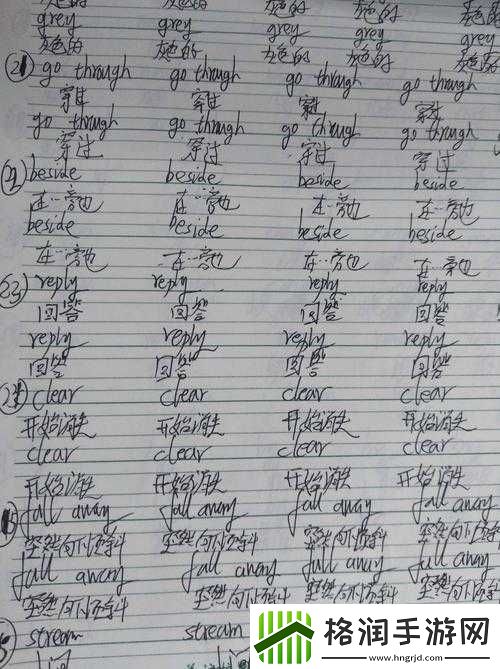 灰色的 灰色的
grey grey grey grey
灰色的 灰色的 灰色的 灰色的
(21) go through go through go through go through
穿过 穿过 穿过 穿过
go through go through go through go through
穿过 穿过 穿过 穿过
(22) beside beside beside beside
在…旁边 在…旁边 在…旁边 在…旁边
beside beside beside beside
在…旁边 在…旁边 在…旁边 在…旁边
(23) reply reply reply reply
回答 回答 回答 回答
reply reply reply reply
回答 回答 回答 回答
(24) clear clear clear clear
开始消失 开始消失 开始消失 开始消失
clear clear clear clear
开始消失 开始消失 开始消失 开始消失
fall away fall away fall away fall away
突然向下倾斜 突然向下倾斜 突然向下倾斜 突然向下倾斜
fall away fall away fall away fall away
突然向下倾斜 突然向下倾斜 突然向下倾斜 突然向下倾斜
stream stream
格润手游网
www.hngrjd.com